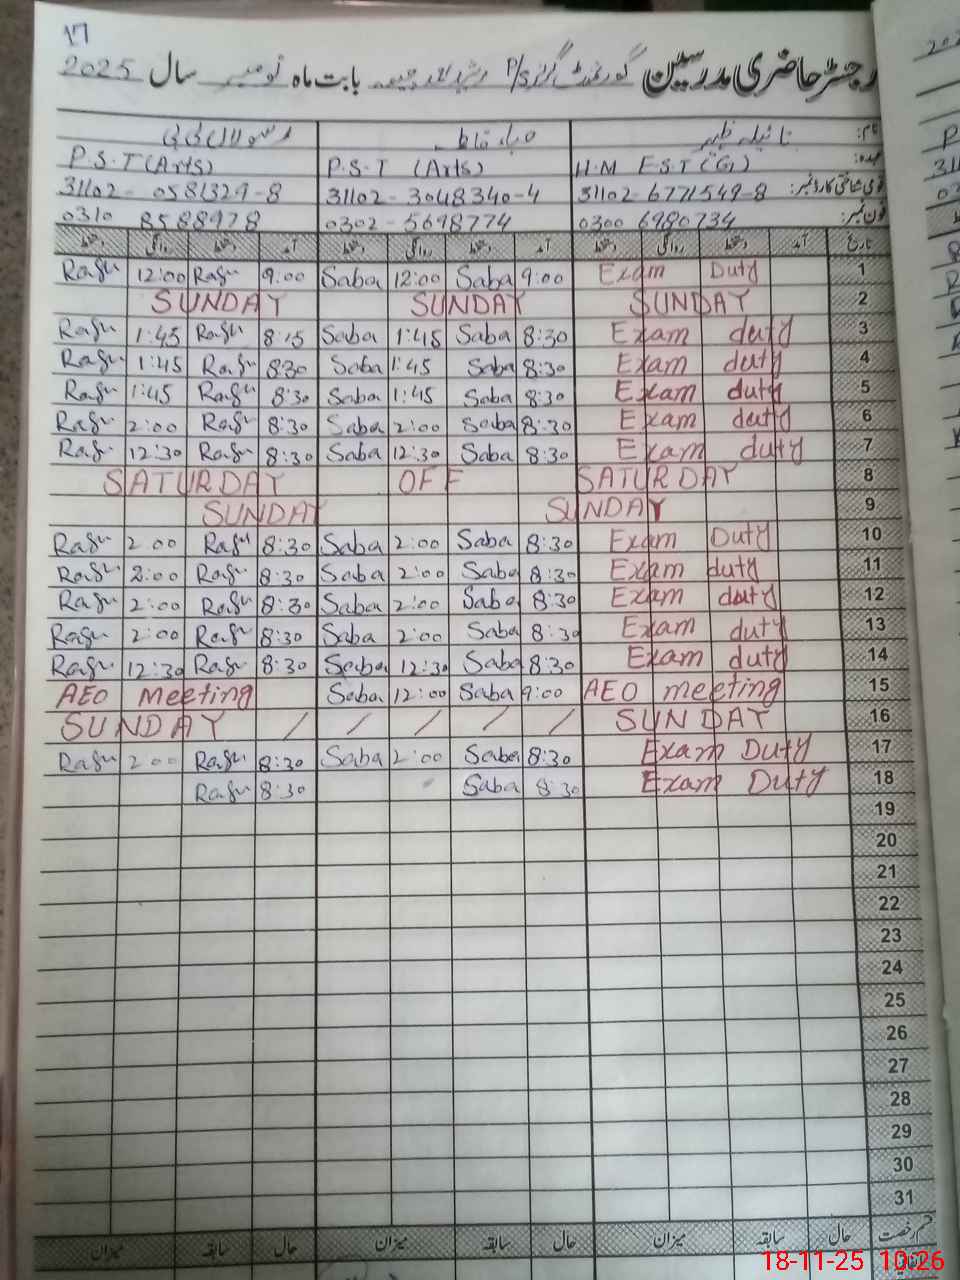 17
رجسٹر حاضری مدرسین گورنمنٹ گرلز P/S بابت ماہ نومبر سال 2025
نام: نائیلہ ظہیر صباء فاطمہ
عہدہ: H.M E.S.T (G) P.S.T (Arts) P.S.T (Arts)
قومی شناختی کارڈ نمبر: 31102-6771549-8 31102-3048340-4 31102-0581329-8
فون نمبر: 0300 6980734 0302-5698774 0310 8588978
تاریخ آمد دستخط روانگی دستخط آمد دستخط روانگی دستخط آمد دستخط روانگی دستخط
Rasu 12:00 Rasu 9:00 Saba 12:00 Saba 9:00 Exam Duty 1
SUNDAY SUNDAY SUNDAY 2
Rasu 1:45 Rasu 8:15 Saba 1:45 Saba 8:30 Exam duty 3
Rasu 1:45 Rasu 8:30 Saba 1:45 Saba 8:30 Exam duty 4
Rasu 1:45 Rasu 8:30 Saba 1:45 Saba 8:30 Exam duty 5
Rasu 2:00 Rasu 8:30 Saba 2:00 Saba 8:30 Exam duty 6
Rasu 12:30 Rasu 8:30 Saba 12:30 Saba 8:30 Exam duty 7
SATURDAY OFF SATURDAY 8
SUNDAY SUNDAY 9
Rasu 2:00 Rasu 8:30 Saba 2:00 Saba 8:30 Exam Duty 10
Rasu 2:00 Rasu 8:30 Saba 2:00 Saba 8:30 Exam duty 11
Rasu 2:00 Rasu 8:30 Saba 2:00 Saba 8:30 Exam duty 12
Rasu 2:00 Rasu 8:30 Saba 2:00 Saba 8:30 Exam duty 13
Rasu 12:30 Rasu 8:30 Saba 12:30 Saba 8:30 Exam duty 14
AEO Meeting Saba 12:00 Saba 9:00 AEO meeting 15
SUNDAY / / / / / SUNDAY 16
Rasu 2:00 Rasu 8:30 Saba 2:00 Saba 8:30 Exam Duty 17
Rasu 8:30 Saba 8:30 Exam Duty 18
19
20
21
22
23
24
25
26
27
28
29
30
31
قسم رخصت حال سابقہ میزان حال سابقہ میزان حال سابقہ میزان
18-11-25 10:26